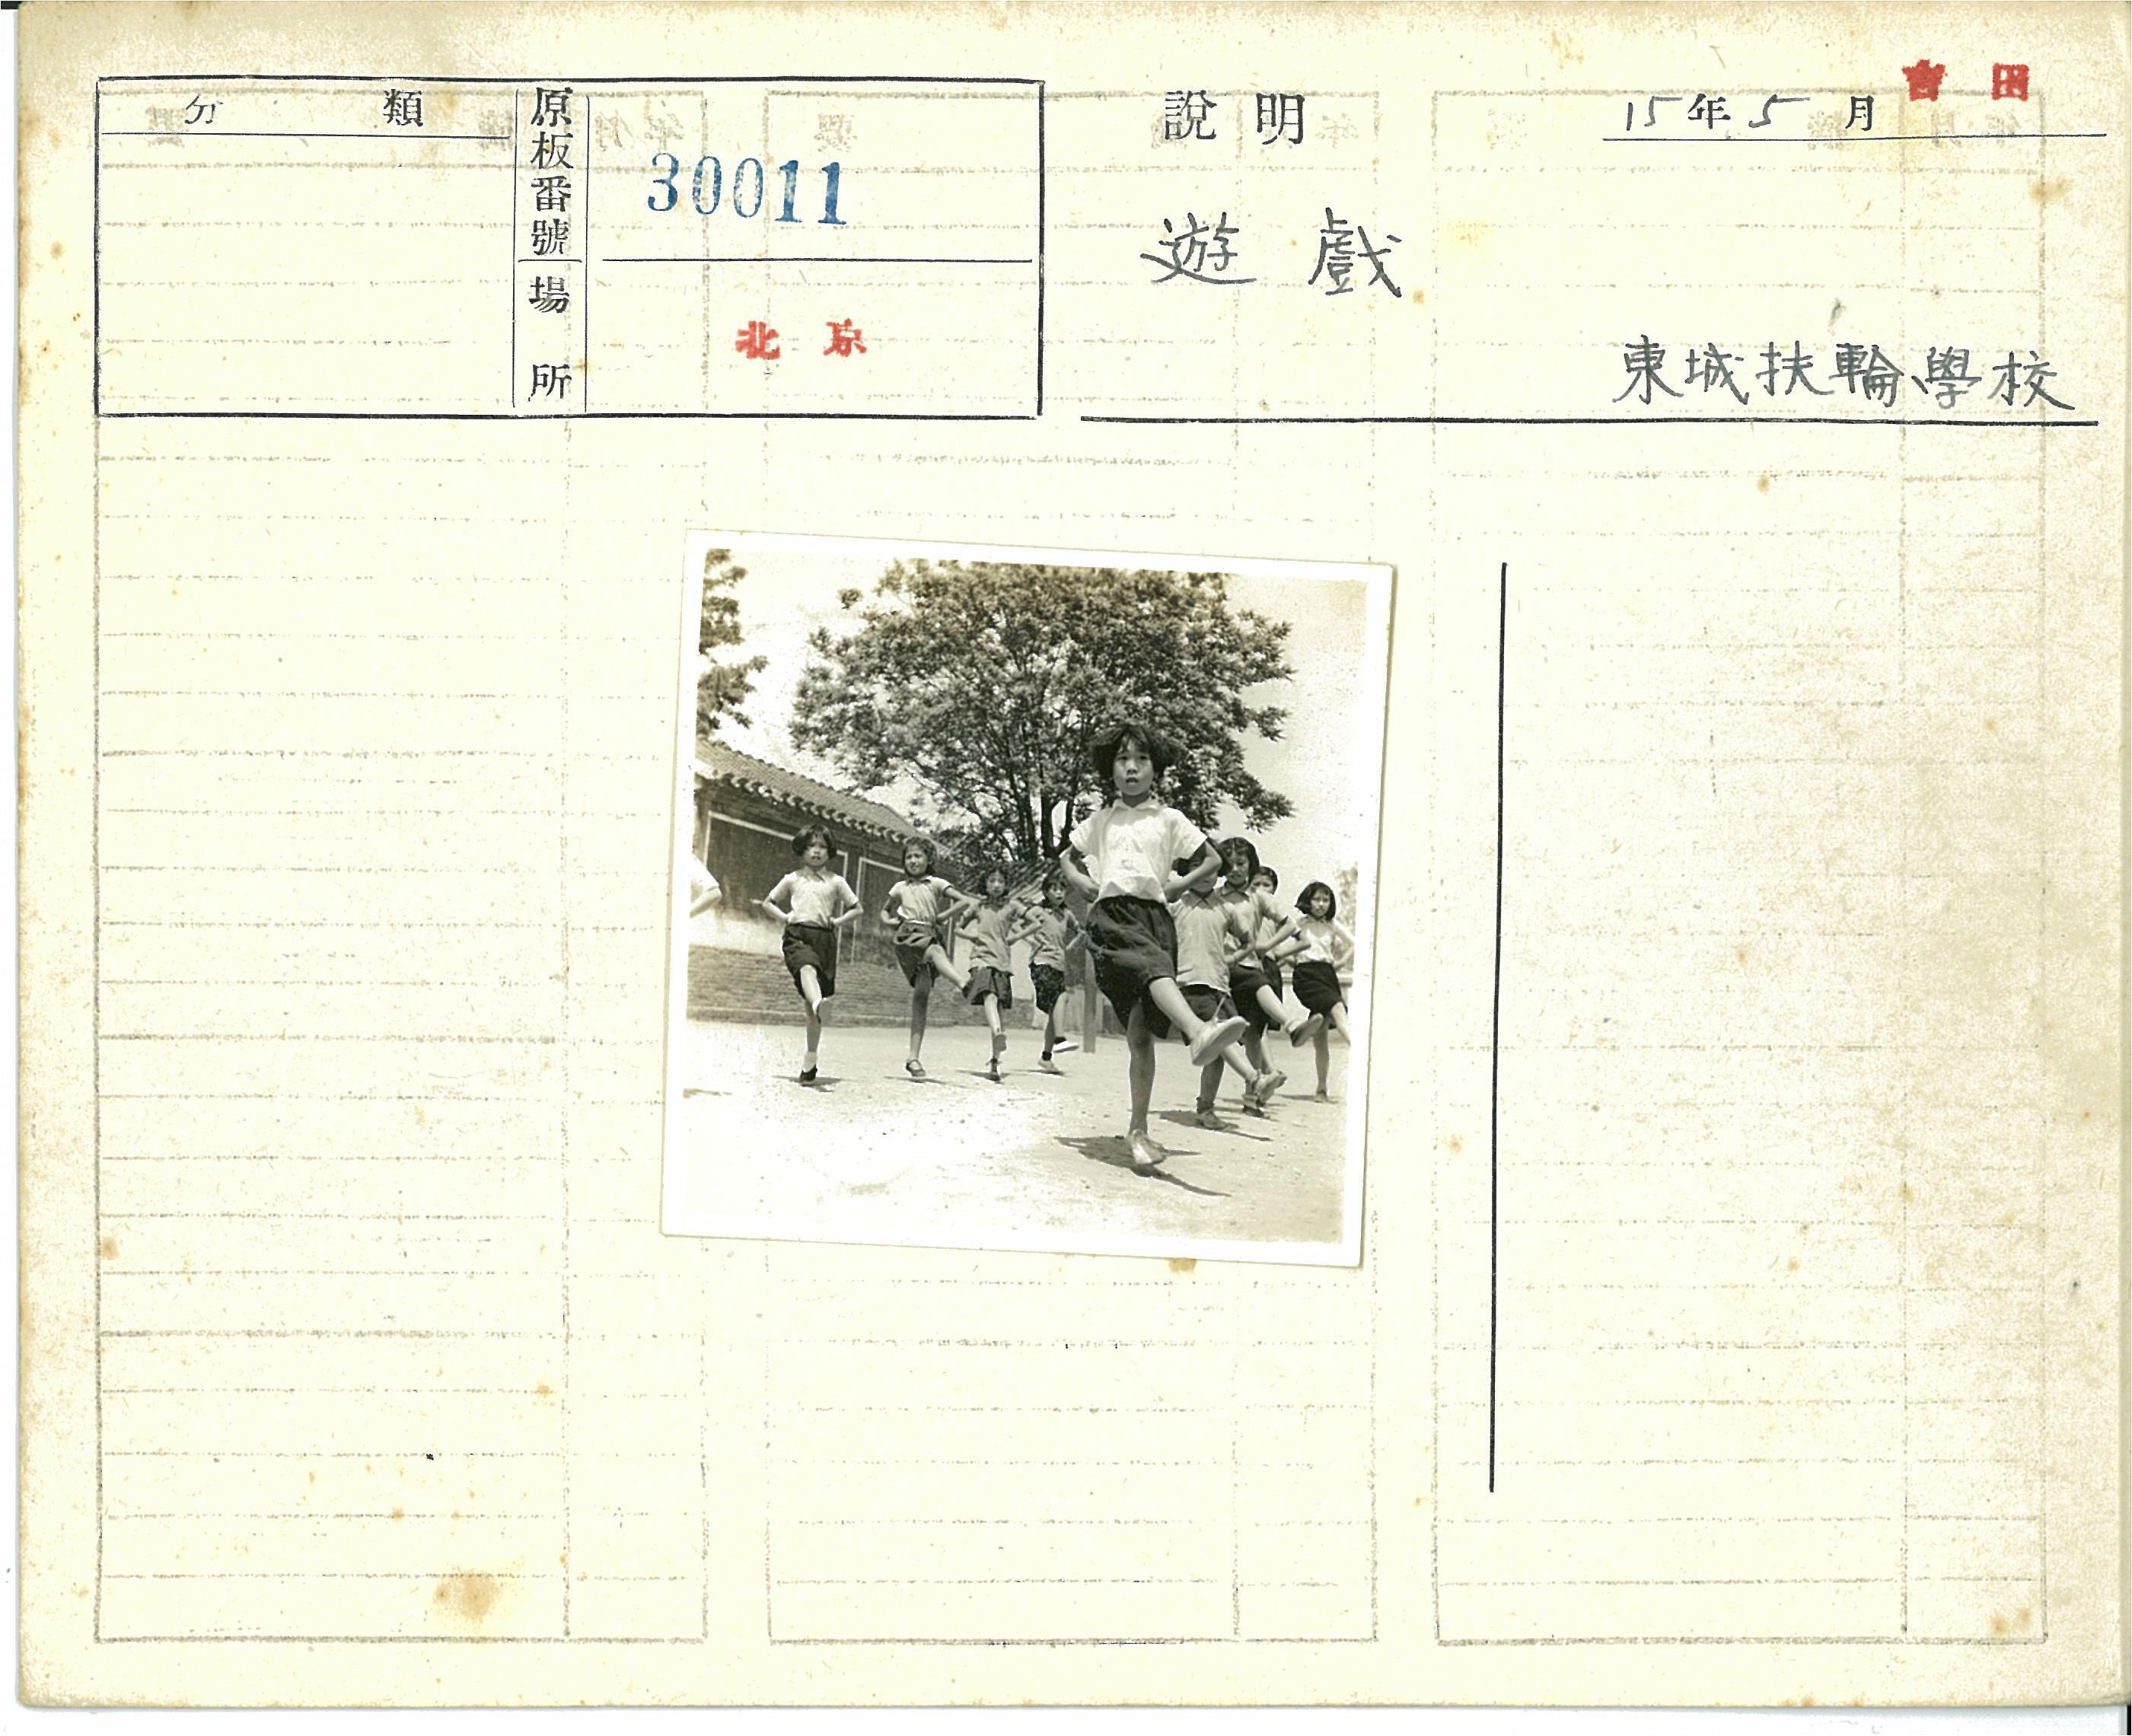 分類
原板番號
30011
場所
北京
說明
15年5月
吉田
遊戲
東城扶輪學校